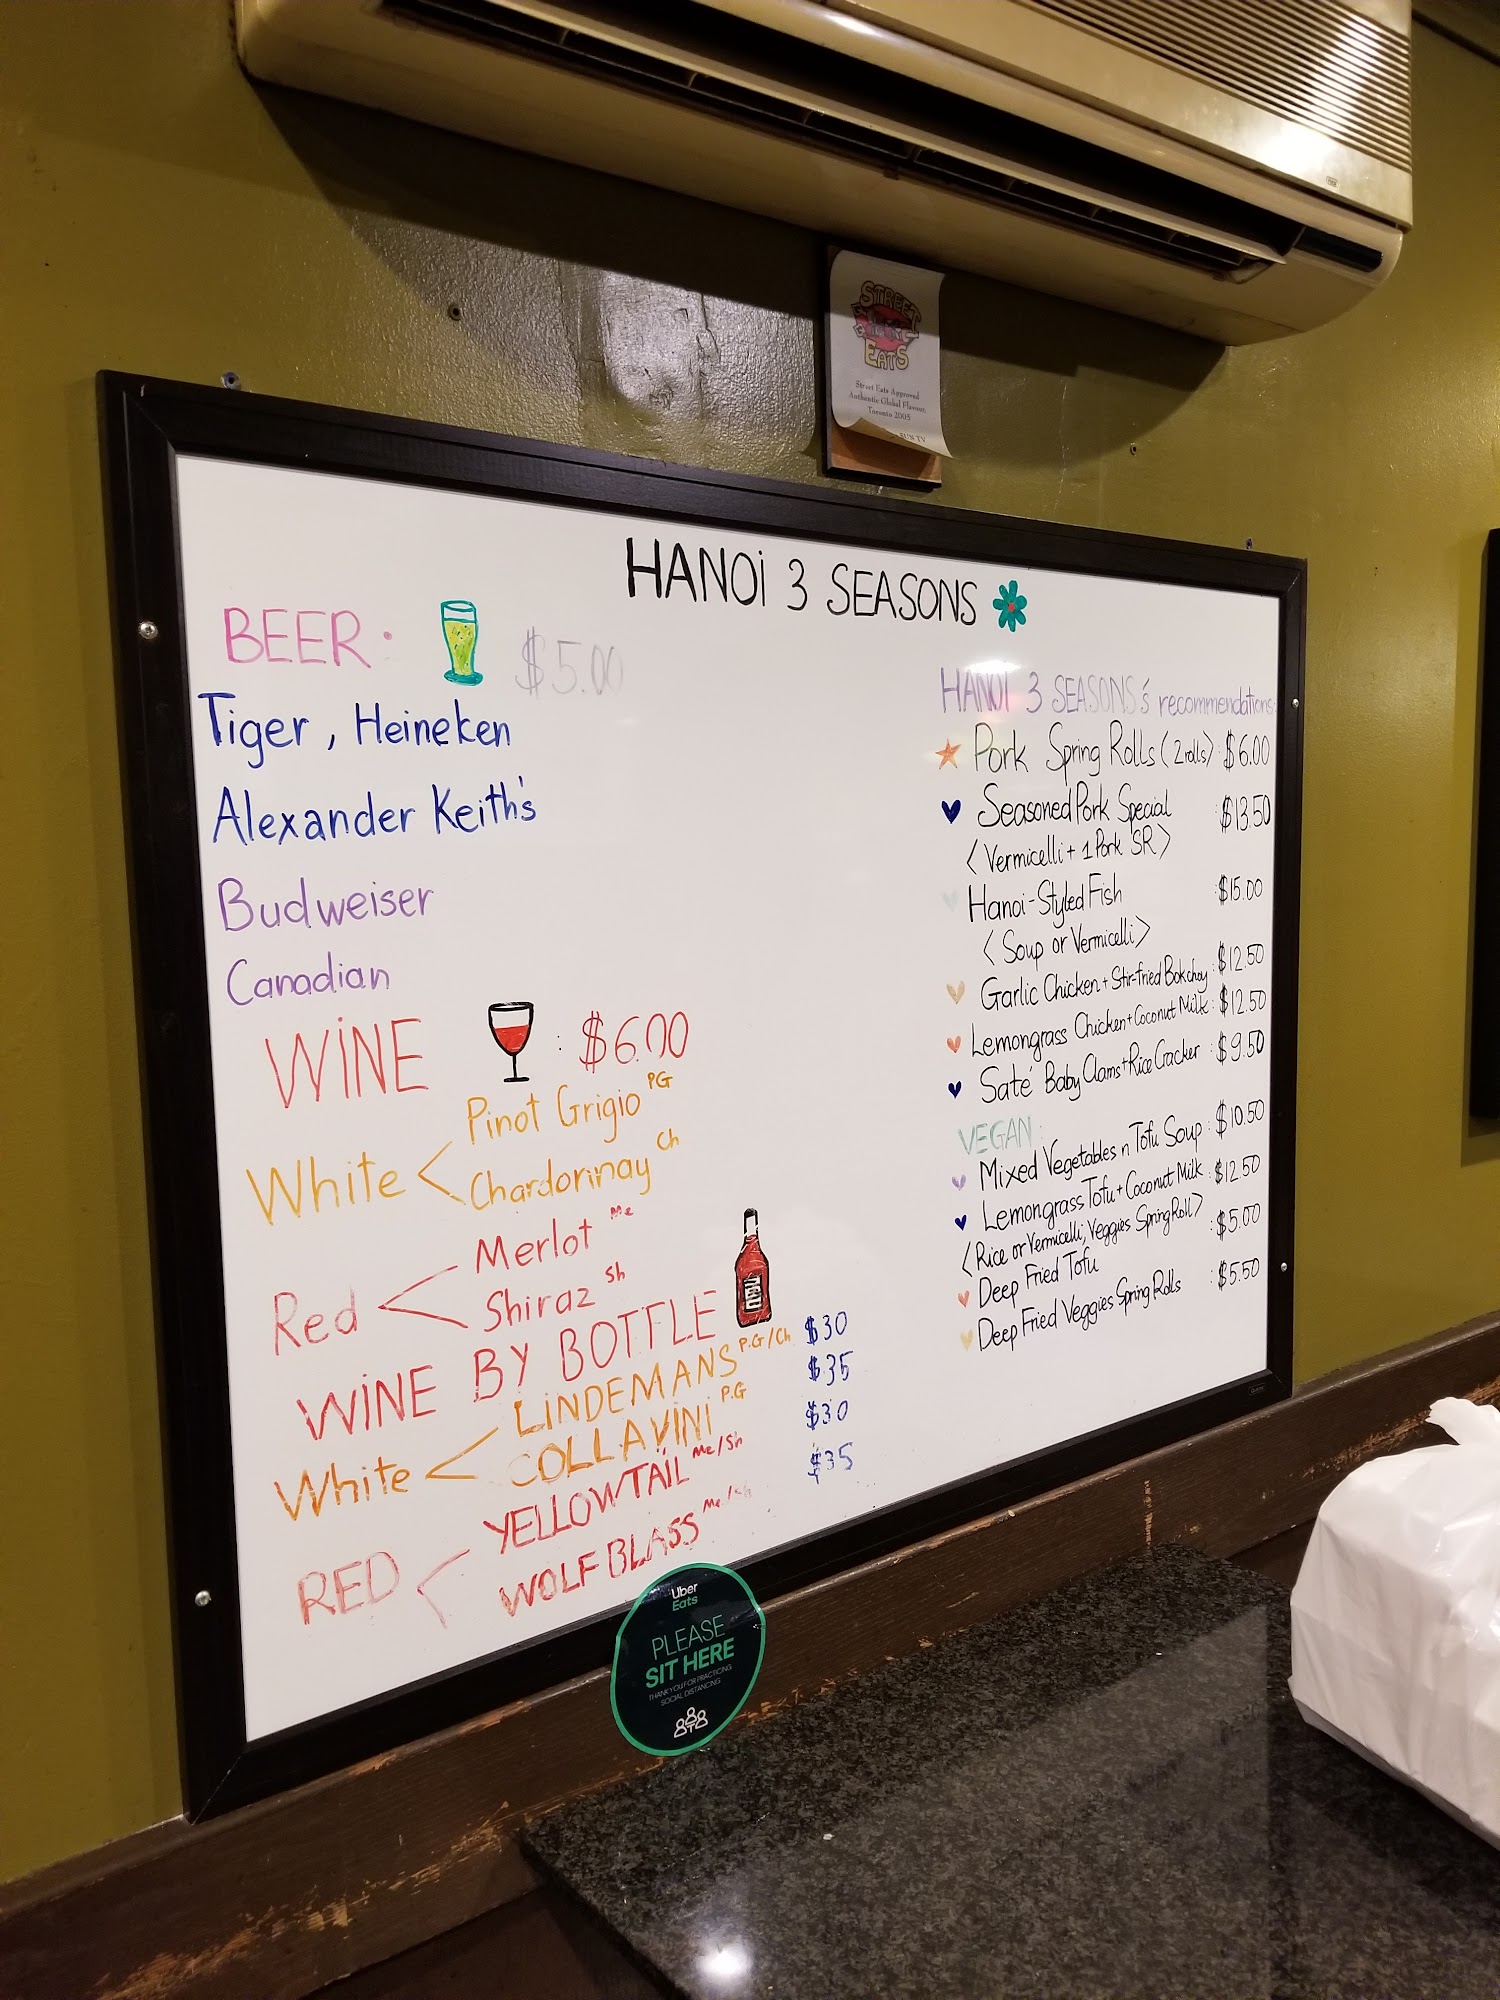 STREET
EATS
Street Eats Approved
Authentic Global Flavour
Toronto 2005
SUN TV
HANOi 3 SEASONS
BEER: $5.00
Tiger, Heineken
Alexander Keith's
Budweiser
Canadian
WiNE : $6.00
White < Pinot Grigio PG
Chardorinay Ch
Red < Merlot Me
Shiraz Sh
WiNE BY BOTTLE
White < LiNDEMANS P.G/Ch $30
COLLAViNi P.G $35
RED < YELLOWTAiL Me/Sh $30
WOLF BLASS Me/Sh $35
HANOi 3 SEASONS's recommendations:
Pork Spring Rolls (2 rolls): $6.00
Seasoned Pork Special : $13.50
<Vermicelli + 1 Pork SR>
Hanoi-Styled Fish : $15.00
<Soup or Vermicelli>
Garlic Chicken + Stir-fried Bokchoy : $12.50
Lemongrass Chicken + Coconut Milk : $12.50
Saté Baby Clams + Rice Cracker : $9.50
VEGAN:
Mixed Vegetables n Tofu Soup : $10.50
Lemongrass Tofu + Coconut Milk : $12.50
<Rice or Vermicelli, Veggies Spring Roll>
Deep Fried Tofu : $5.00
Deep Fried Veggies Spring Rolls : $5.50
Uber
Eats
PLEASE
SIT HERE
THANK YOU FOR PRACTICING
SOCIAL DISTANCING